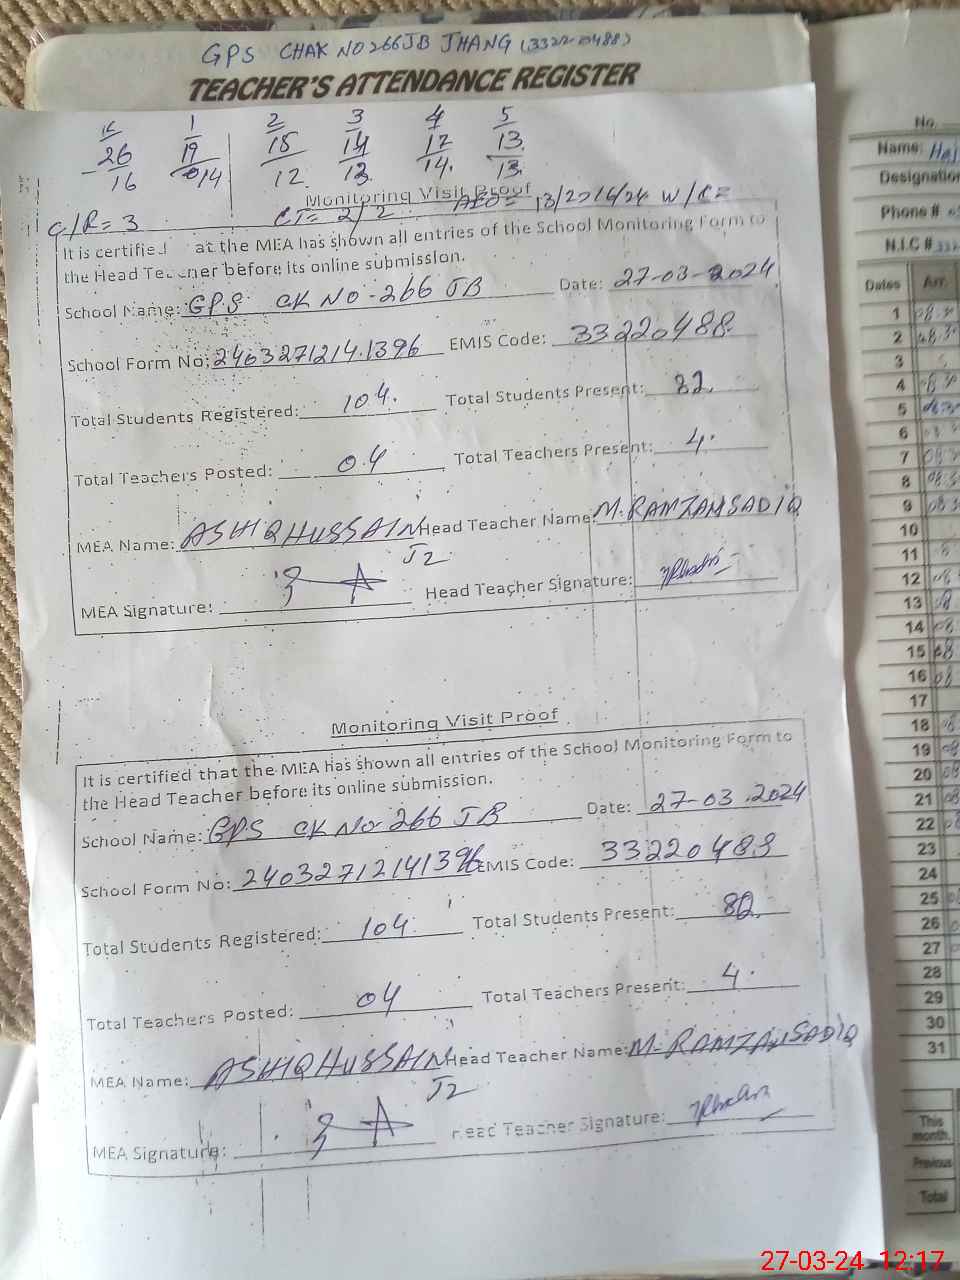 GPS CHAK NO 266JB JHANG (3322-0488)
TEACHER'S ATTENDANCE REGISTER
K 1 2 3 4 5
26 19 15 14 17 13
16 14 12 13 14 13
Monitoring Visit Proof
C/R = 3
It is certified at the MEA has shown all entries of the School Monitoring Form to
the Head Teacher before its online submission.
School Name: GPS CK NO-266 JB Date: 27-03-2024
School Form No: 24032712141396 EMIS Code: 33220488
Total Students Registered: 104. Total Students Present: 82
Total Teachers Posted: 04 Total Teachers Present: 4.
MEA Name: ASHIQ HUSSAIN Head Teacher Name: M. RAMZAN SADIQ
J2
MEA Signature: Head Teacher Signature:
Monitoring Visit Proof
It is certified that the MEA has shown all entries of the School Monitoring Form to
the Head Teacher before its online submission.
School Name: GPS CK NO 266 JB Date: 27-03.2024
School Form No: 24032712141396 EMIS Code: 33220488
Total Students Registered: 104 Total Students Present: 82
Total Teachers Posted: 04 Total Teachers Present: 4.
MEA Name: ASHIQ HUSSAIN Head Teacher Name: M. RAMZAN SADIQ
J2
MEA Signature: Head Teacher Signature:
No.
Name:
Designation
Phone #
N.I.C #
Dates Arr.
1
2
3
4
5
6
7
8
9
10
11
12
13
14
15
16
17
18
19
20
21
22
23
24
25
26
27
28
29
30
31
This
month.
Previous
Total
27-03-24 12:17